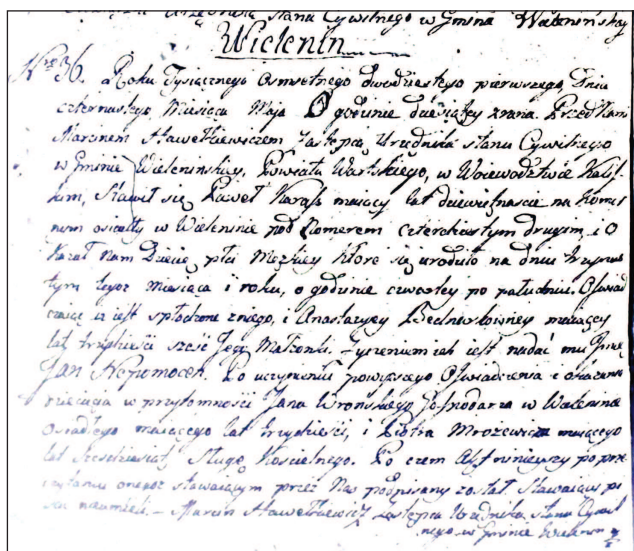 Urzędnika Stanu Cywilnego w Gminie Wielenińskiey
Wielenin
Nro 36. Roku Tysiącznego Osmsetnego dwudziestego pierwszego, Dnia
czternastego Miesiąca Maja O godzinie dziesiątey zrana. Przed Nami
Marcinem Hawełkiewiczem Zastępcą Urzędnika stanu Cywilnego
w Gminie Wielenińskiey, Powiatu Wartskiego, w Woiewodztwie Kalis-
kim, Stawił się Paweł Karaś maiący lat dziewiętnascie na Komor
nem osiadły w Wieleninie pod Numerem czterdziestym drugim, i O
kazał Nam Dziecię płci Męzkiey które się urodziło na dniu trzynas
tym tegoż miesiąca i roku, o godzinie czwartey po południu. Oswiad
czaiąc iż iest spłodzone z niego, i Anastazyey maiącey
lat trzydzieści szesć Jego Małżonki. Życzeniem ich iest nadać mu Imie
Jan Nepomocen. Po uczynieniu powyższego Oświadczenia i okazaniu
dziecięcia w przytomności Jana Wronskiego Gospodarza w Wieleninie
Osiadłego maiącego lat trzydzieści, i Piotra Mrozewicza maiącego
lat szescdziesiąt Sługę Kościelnego. Po czem Akt ninieyszy po prze
czytaniu onegoż stawaiącym przez Nas podpisany został. Stawaiący pi
sać nieumieli. – Marcin Hawełkiewicz Zastępca Urzędnika stanu Cywil
nego w Gminie Wielenin